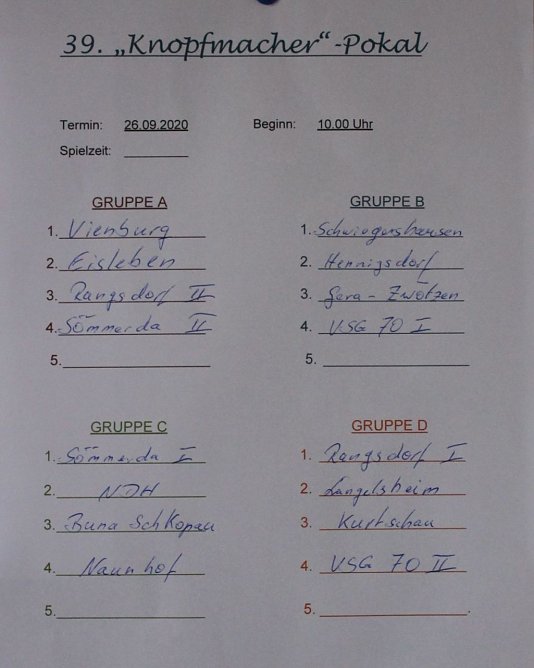 39. „Knopfmacher“-Pokal
Termin: 26.09.2020 Beginn: 10.00 Uhr
Spielzeit: ________
GRUPPE A
1. Vienburg
2. Eisleben
3. Rangsdorf II
4. Sömmerda II
5.
GRUPPE B
1. Schwiegershausen
2. Hennigsdorf
3. Gera - Zwötzen
4. VSG 70 I
5.
GRUPPE C
1. Sömmerda I
2. NDH
3. Buna Schkopau
4. Naunhof
5.
GRUPPE D
1. Rangsdorf I
2. Langelsheim
3. Kurtschau
4. VSG 70 II
5.